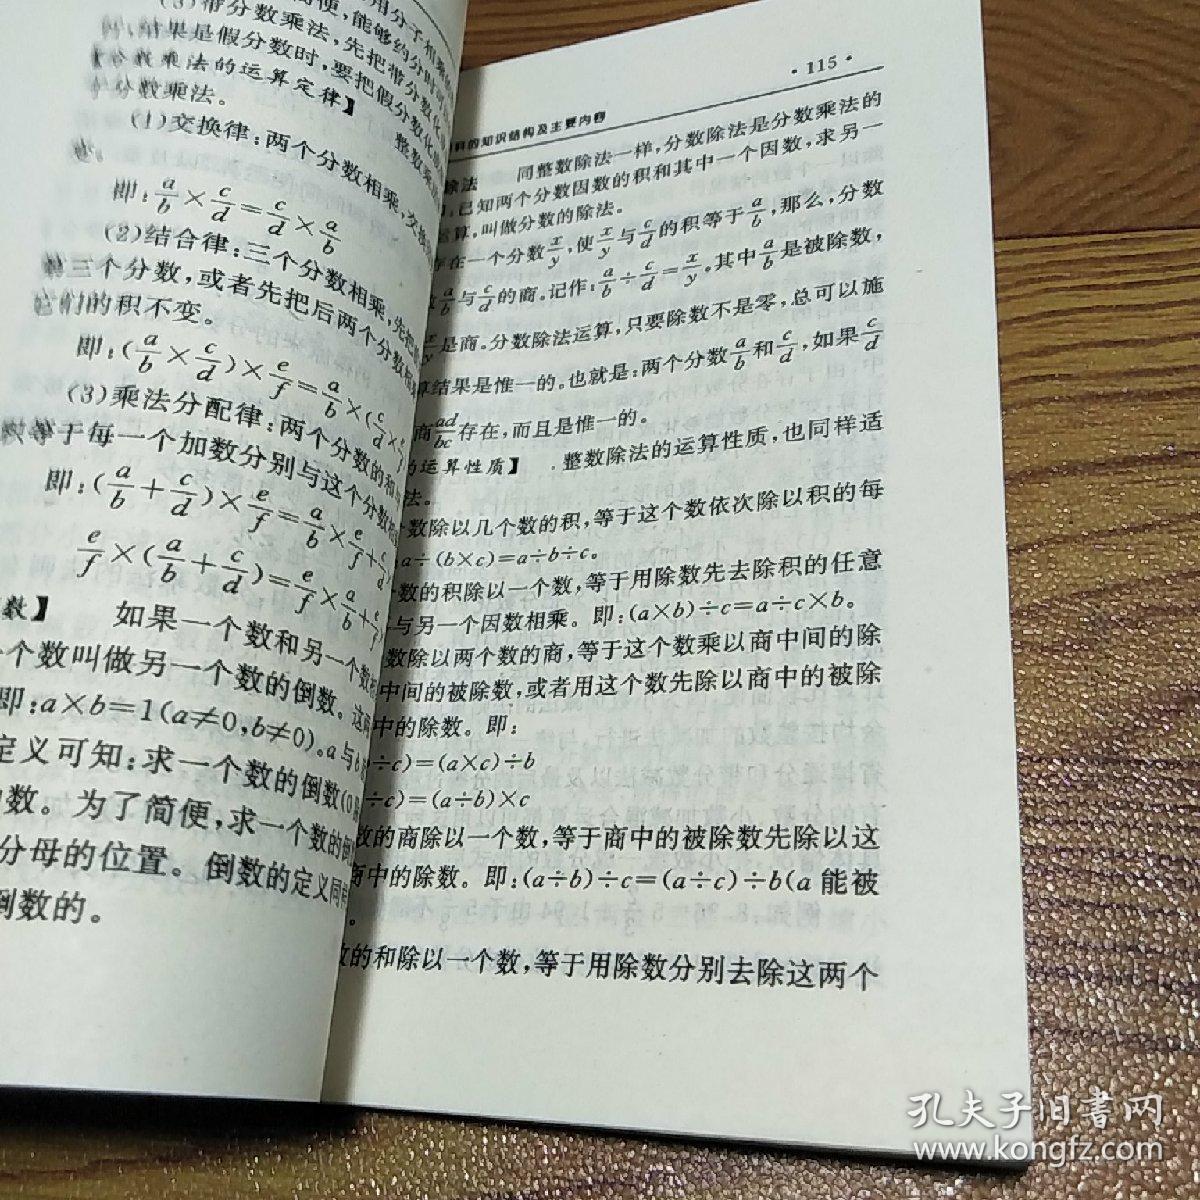 用分子相乘
(3)带分数乘法,先把带分数化
结果是假分数时,要把假分数化
分数乘法的运算定律】 整数乘
分数乘法。
(1)交换律:两个分数相乘,交换
即:a/b×c/d=c/d×a/b
(2)结合律:三个分数相乘,先把
三个分数,或者先把后两个分数
它们的积不变。
即:(a/b×c/d)×e/f=a/b×(c/d×e/f)
(3)乘法分配律:两个分数的和
积等于每一个加数分别与这个分数
即:(a/b+c/d)×e/f=a/b×e/f+c/d
e/f×(a/b+c/d)=e/f×a/b+e/f
数】 如果一个数和另一个数
个数叫做另一个数的倒数。这
即:a×b=1(a≠0,b≠0)。a与b
定义可知:求一个数的倒数(0
数。为了简便,求一个数的倒
分母的位置。倒数的定义同
倒数的。
·115·
的知识结构及主要内容
除法 同整数除法一样,分数除法是分数乘法的
已知两个分数因数的积和其中一个因数,求另一
运算。叫做分数的除法。
存在一个分数x/y,使x/y与c/d的积等于a/b,那么,分数
a/b与c/d的商。记作:a/b÷c/d=x/y。其中a/b是被除数,
是商。分数除法运算,只要除数不是零,总可以施
算结果是惟一的。也就是:两个分数a/b和c/d,如果c/d
商ad/bc存在,而且是惟一的。
的运算性质】 整数除法的运算性质,也同样适
法。
数除以几个数的积,等于这个数依次除以积的每
a÷(b×c)=a÷b÷c。
数的积除以一个数,等于用除数先去除积的任意
与另一个因数相乘。即:(a×b)÷c=a÷c×b。
数除以两个数的商,等于这个数乘以商中间的除
中间的被除数,或者用这个数先除以商中的被除
中的除数。即:
÷c)=(a×c)÷b
÷c)=(a÷b)×c
的商除以一个数,等于商中的被除数先除以这
商中的除数。即:(a÷b)÷c=(a÷c)÷b(a能被
。
的和除以一个数,等于用除数分别去除这两个
孔夫子旧书网
www.kongfz.com